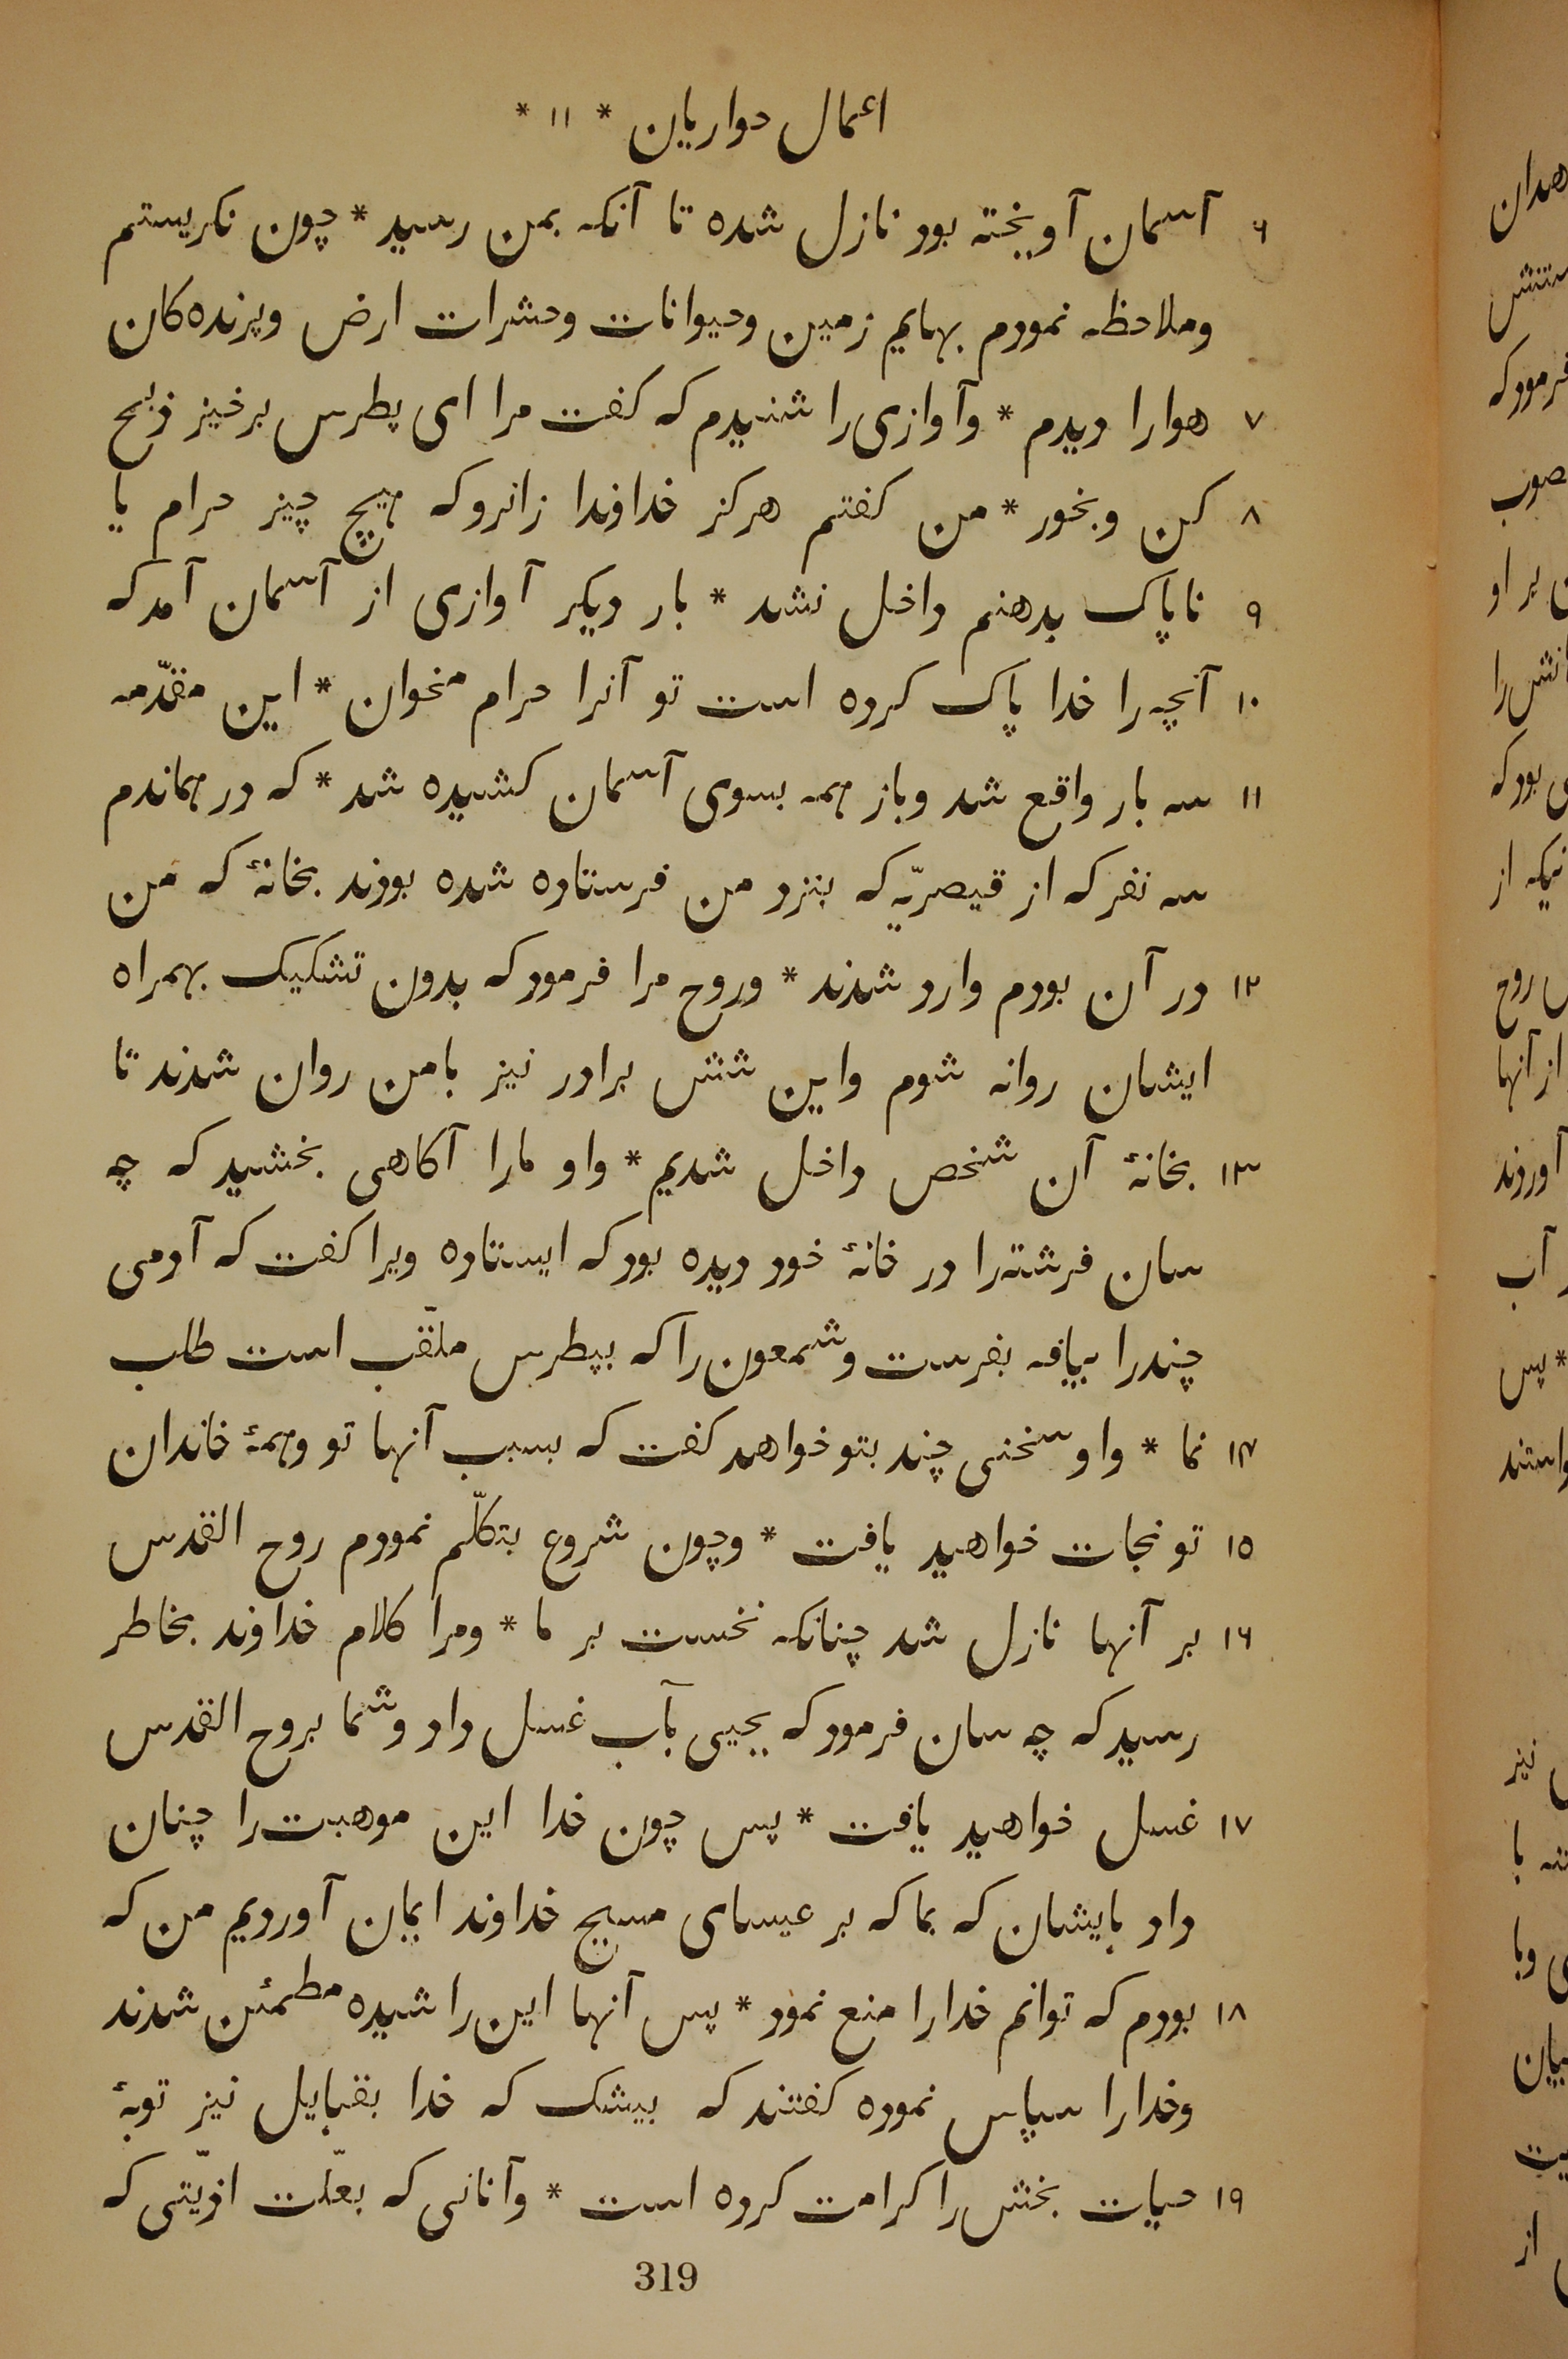 اعمال حواریان * ۱۱ *
۶ آسمان آویخته بود نازل شده تا آنکه بمن رسید * چون نکریستم
وملاحظه نمودم بهایم زمین وحیوانات وحشرات ارض وپرنده‌کان
۷ هوارا دیدم * وآوازی را شنیدم که کفت مرا ای پطرس برخیز ذبح
۸ کن وبخور * من کفتم هرکز خداوندا زانروکه هیچ چیز حرام یا
۹ ناپاک بدهنم داخل نشد * بار دیکر آوازی از آسمان آمد که
۱۰ آنچه را خدا پاک کرده است تو آنرا حرام مخوان * این مقدّمه
۱۱ سه بار واقع شد وباز همه بسوی آسمان کشیده شد * که در هماندم
سه نفر که از قیصریّه که بنزد من فرستاده شده بودند بخانهٔ که من
۱۲ در آن بودم وارد شدند * وروح مرا فرمود که بدون تشکیک بهمراه
ایشان روانه شوم واین شش برادر نیز بامن روان شدند تا
۱۳ بخانهٔ آن شخص داخل شدیم * واو مارا آکاهی بخشید که چه
سان فرشته‌را در خانهٔ خود دیده بود که ایستاده ویرا کفت که آدمی
چندرا بیافه بفرست وشمعون را که بپطرس ملقّب است طلب
۱۴ نما * واو سخنی چند بتو خواهد کفت که بسبب آنها تو وهمهٔ خاندان
۱۵ تو نجات خواهید یافت * وچون شروع بتکلّم نمودم روح القدس
۱۶ بر آنها نازل شد چنانکه نخست بر ما * ومرا کلام خداوند بخاطر
رسید که چه سان فرمود که یحیی بآب غسل داد وشما بروح القدس
۱۷ غسل خواهید یافت * پس چون خدا این موهبت را چنان
داد بایشان که بما که بر عیسای مسیح خداوند ایمان آوردیم من که
۱۸ بودم که توانم خدارا منع نمود * پس آنها این را شیده مطمئن شدند
وخدارا سپاس نموده کفتند که بیشک که خدا بقبایل نیز توبهٔ
۱۹ حیات بخش را کرامت کرده است * وآنانی که بعلّت اذیّتی که
319